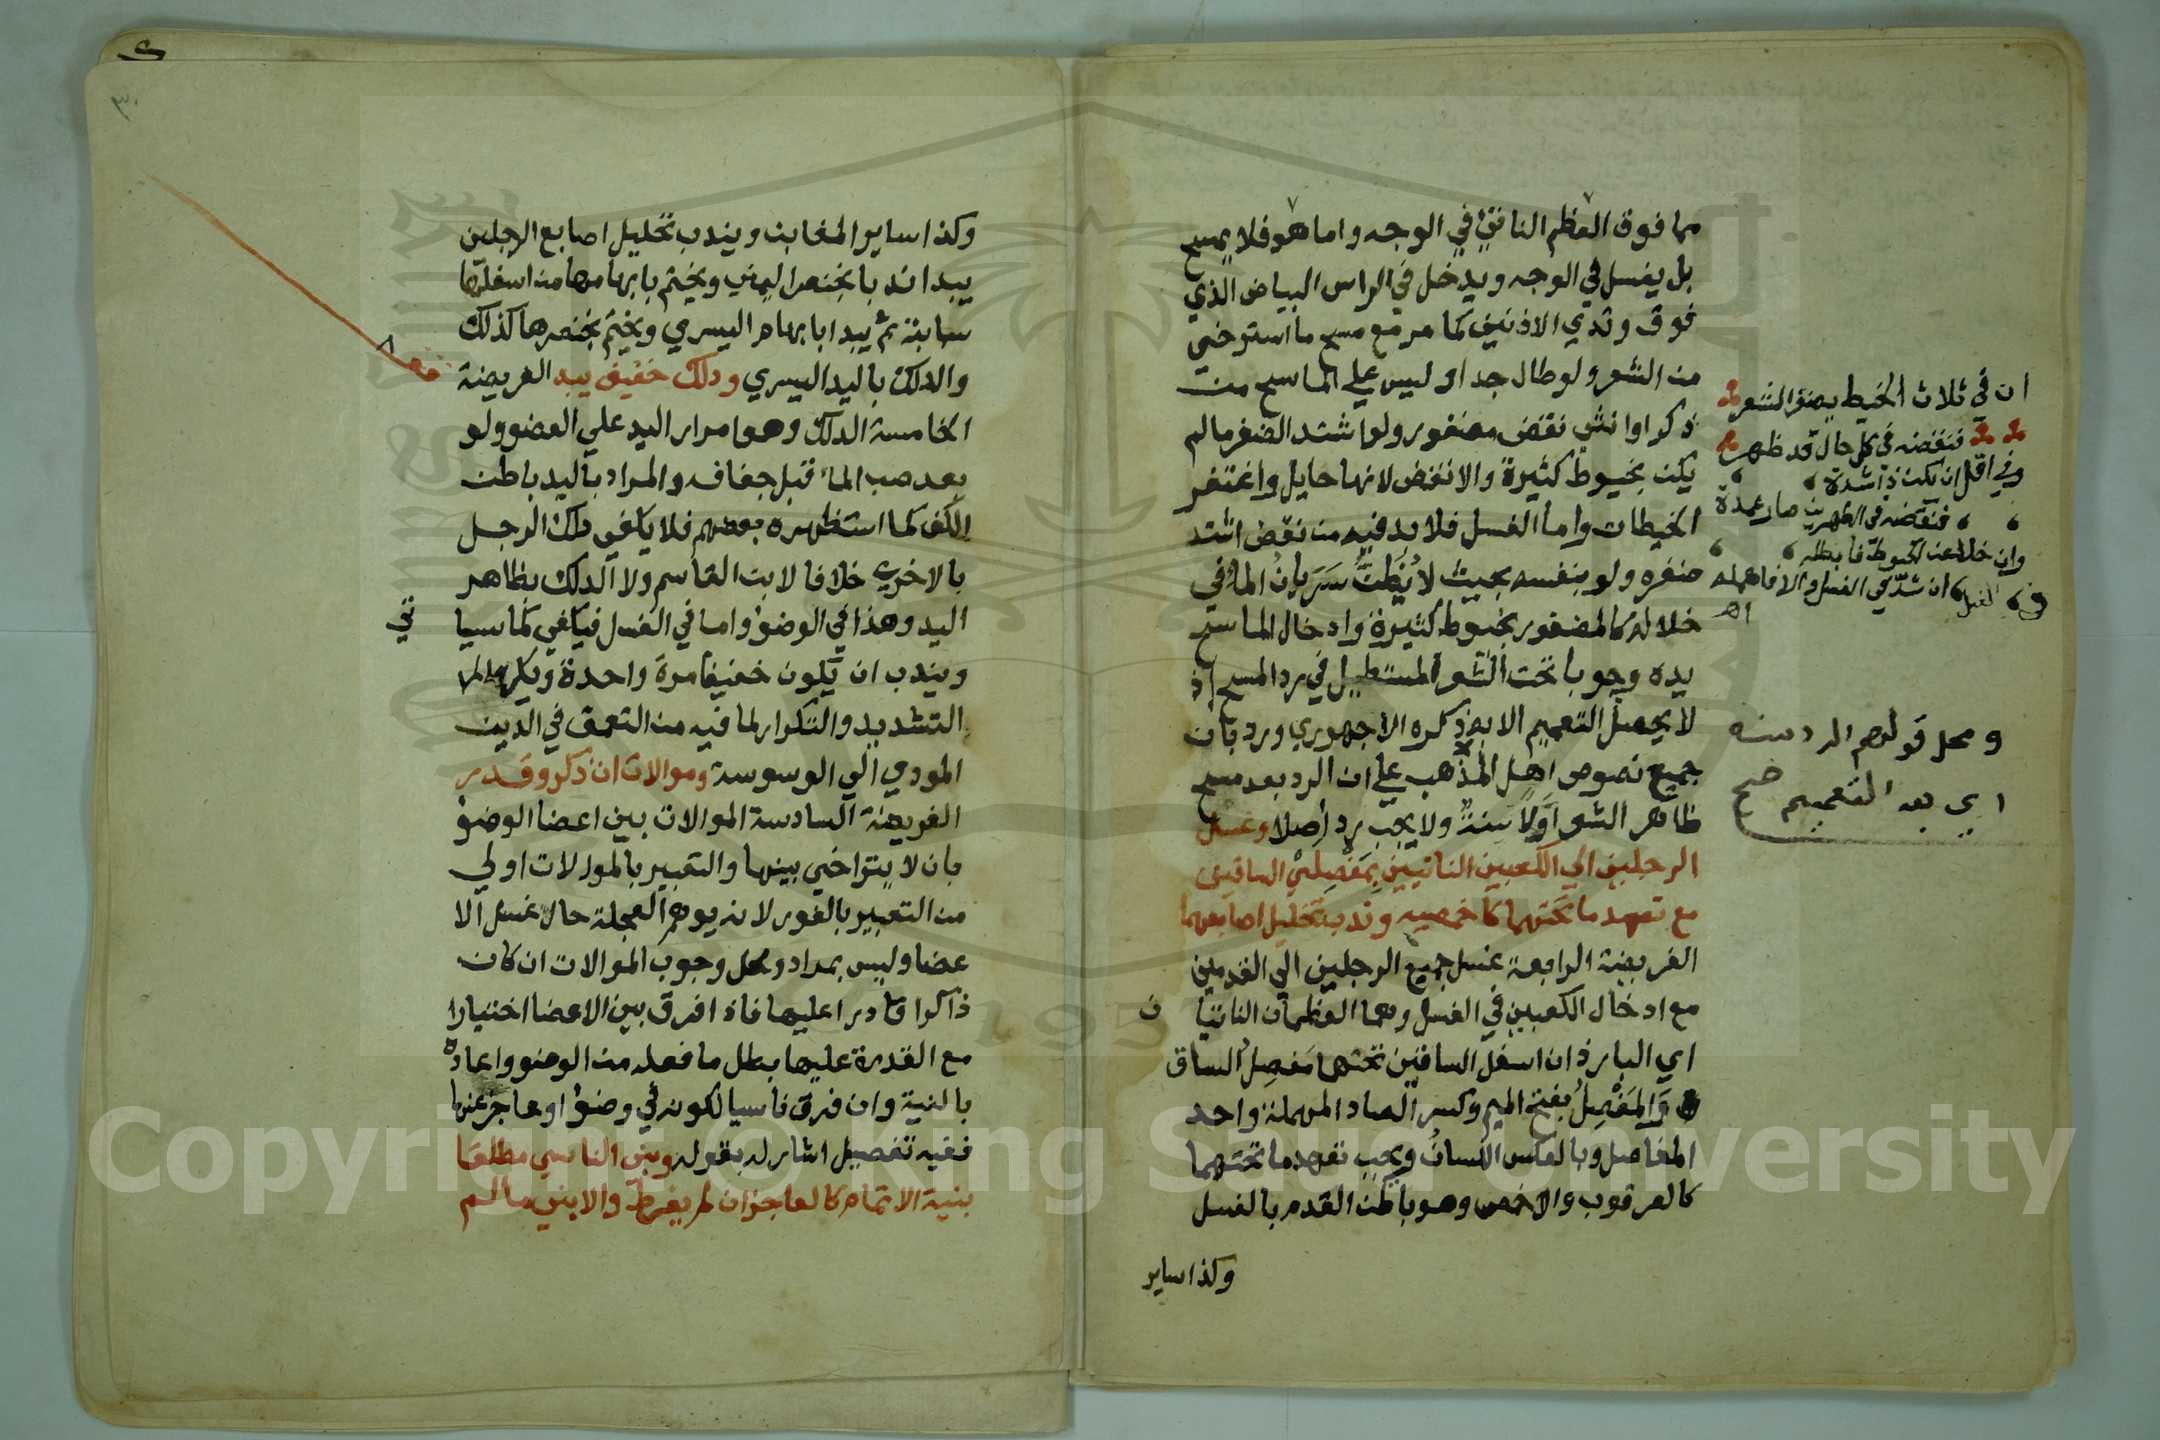 مما فوق العظم الناتئ في الوجه واما هو فلا يمسح
بل يغسل في الوجه ويدخل في الراس البياض الذي
فوق وتدي الاذنين كما مر مع مسح ما استرخي
من الشعر ولو طال جدا وليس علي الماسح من
ذكر او انثي نقض مضفور ولو اشتد الضفر ما لم
يكن بخيوط كثيرة والا نقض لانها حايل واغتفر
الخيطات واما الغسل فلا بد فيه من نقض اشتد
ضفره ولو بنفسه بحيث لا يُظَنُّ سَرَيانُ الماء في
خلاله كالمضفور بخيوط كثيرة وادخال الماسح
يده وجوبا تحت الشعر المستطيل في رد المسح اذ
لا يحصل التعميم الا به ذكره الاجهوري ورد بان
جميع نصوص اهل المذهب علي ان الرد بعد مسح
ظاهر الشعر اوَّلاً سنة ولا يجب رد اصلا وغسل
الرجلين الي الكعبين الناتيين بِمَفْصِلي الساقين
مع تعهد ما تحتهما كاخمصيه وندب تخليل اصابعهما
الفريضة الرابعة غسل جميع الرجلين الي القدمين
مع ادخال الكعبين في الغسل وهما العظمان الناتيا
ن
اي البارزان اسفل الساقين تحتهما مَفصِلُ الساق
وَالمَفْصِلُ بفتح الميم وكسر الصاد المهملة واحد
المفاصل وبالعكس اللسانُ ويجب تعهد ما تحتهما
كالعرقوب والاخمص وهو باطن القدم بالغسل
وكذا ساير
ان في ثلاث الخيط يضفر الشعر
فنقضه في كل حال قد ظهر
وفي اقل ان يكن ذا شدة
فنقضه في الطهرين صار عمدة
وان خلا عن الخيوط فابطله
في الغسل ان شد والا فاهمله
اهـ
ومحل قولهم الرد سنة
اي بعد التعميم صح
٣٠
وكذا ساير المغابن ويندب تخليل اصابع الرجلين
يبدا ندبا بخنصر اليمني ويختم بابهامها من اسفلها
سبابة ثم يبدا بابهام اليسري ويختم بخنصرها كذلك
والدلك باليد اليسري ودلك خفيف بيد الفريضة
الخامسة الدلك وهو امرار اليد علي العضو ولو
بعد صب الماء قبل جفافه والمراد باليد باطن
الكف كما استظهره بعضهم فلا يكفي دلك الرجل
بالاخري خلافا لابن القاسم ولا الدلك بظاهر
اليد وهذا في الوضوء واما في الغسل فيكفي كما سيا
تي
ويندب ان يكون خفيفا مرة واحدة ويكره
التشديد والتكرار لما فيه من التعمق في الدين
المودي الي الوسوسة وموالات ان ذكر وقدر
الفريضة السادسة الموالات بين اعضا الوضوء
بان لا يتراخي بينها والتعبير بالموالات اولي
من التعبير بالفور لانه يوهم العجلة حال غسل الا
عضا وليس بمراد ومحل وجوب الموالات ان كان
ذاكرا قادرا عليها فاذا فرق بين الاعضا اختيارا
مع القدرة عليها بطل ما فعله من الوضو واعاده
بالنية وان فرق ناسيا لكونه في وضوء او عاجز عنها
ففيه تفصيل اشار له بقوله وبني الناسي مطلقا
بنية الاتمام كالعاجز ان لم يفرط والا بني ما لم